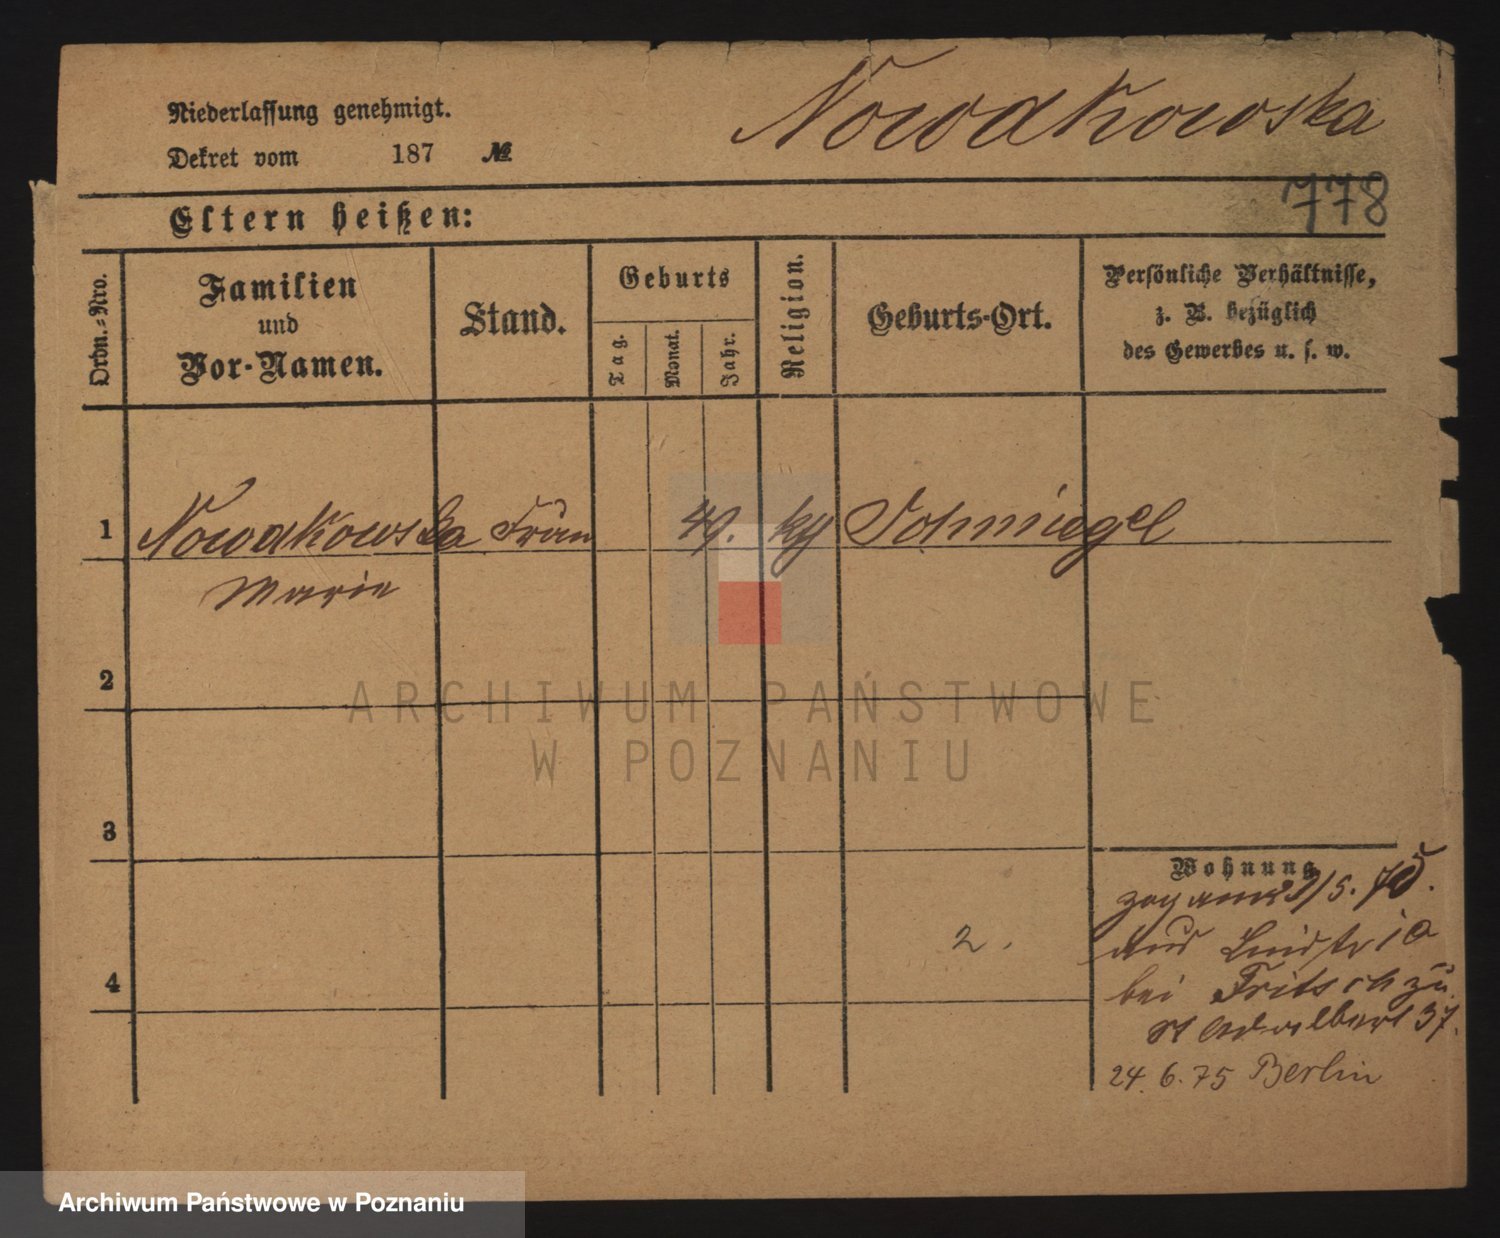 Niederlassung genehmigt.
Nowadkowska
Dekret vom 187 №
778
Eltern heißen:
Ordn.-Nro.
Familien
und
Vor-Namen.
Stand.
Geburts
Tag.
Monat.
Jahr.
Religion.
Geburts-Ort.
Persönliche Verhältnisse,
z. B. bezüglich
des Gewerbes u. s. w.
1 Nowadkowska 49. Schmiegel
Marie
2
ARCHIWUM PAŃSTWOWE
W POZNANIU
3
Wohnung
/5. 75.
2.
bei Fritsch zu
4
St Adalbert 37.
24. 6. 75 Berlin
Archiwum Państwowe w Poznaniu